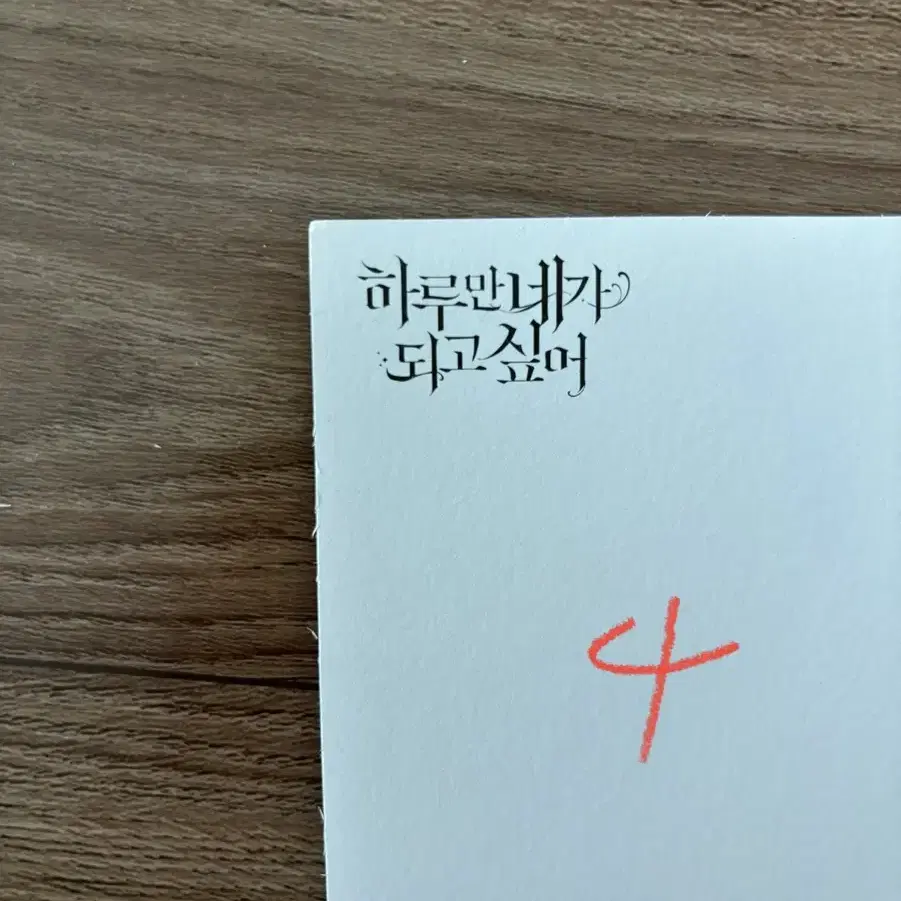 하루만 네가
되고 싶어
4